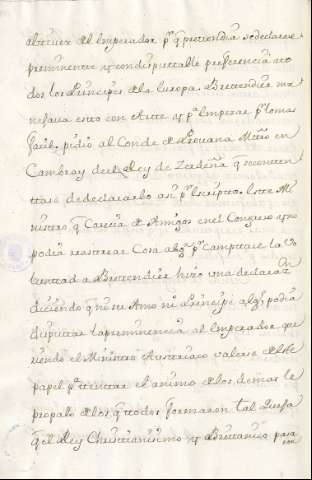 altivez del Emperador pª q pretendia se declarase
preeminente y condisputable preferencia à to
dos los Principes de la Europa. Bretendier ma
nejava esto con Arte y pª empezar pº lo mas
facil, pidio al Conde de Provana Mtrô en
Cambray del Rey de Zerdeña q consinten
ttase de declararlo asi pº Escripto. Este Mi
nistro q Carecia de Amigos en el Congreso y no
podia rastrear Cosa alg.ª pª Campttarse la Vo
luntad a Brettendier hizo una declaraz.on
diciendo q ni su Amo ni Principe alg.º podia
disputtar la preeminencia al Emperador que
riendo el Ministro Austriaco valerse de este
papel pª ttenttar el animo de los demas le
propaló de los q ttodos formaron tal Quexa
q el Rey Christianissimo y Brittanico para
con